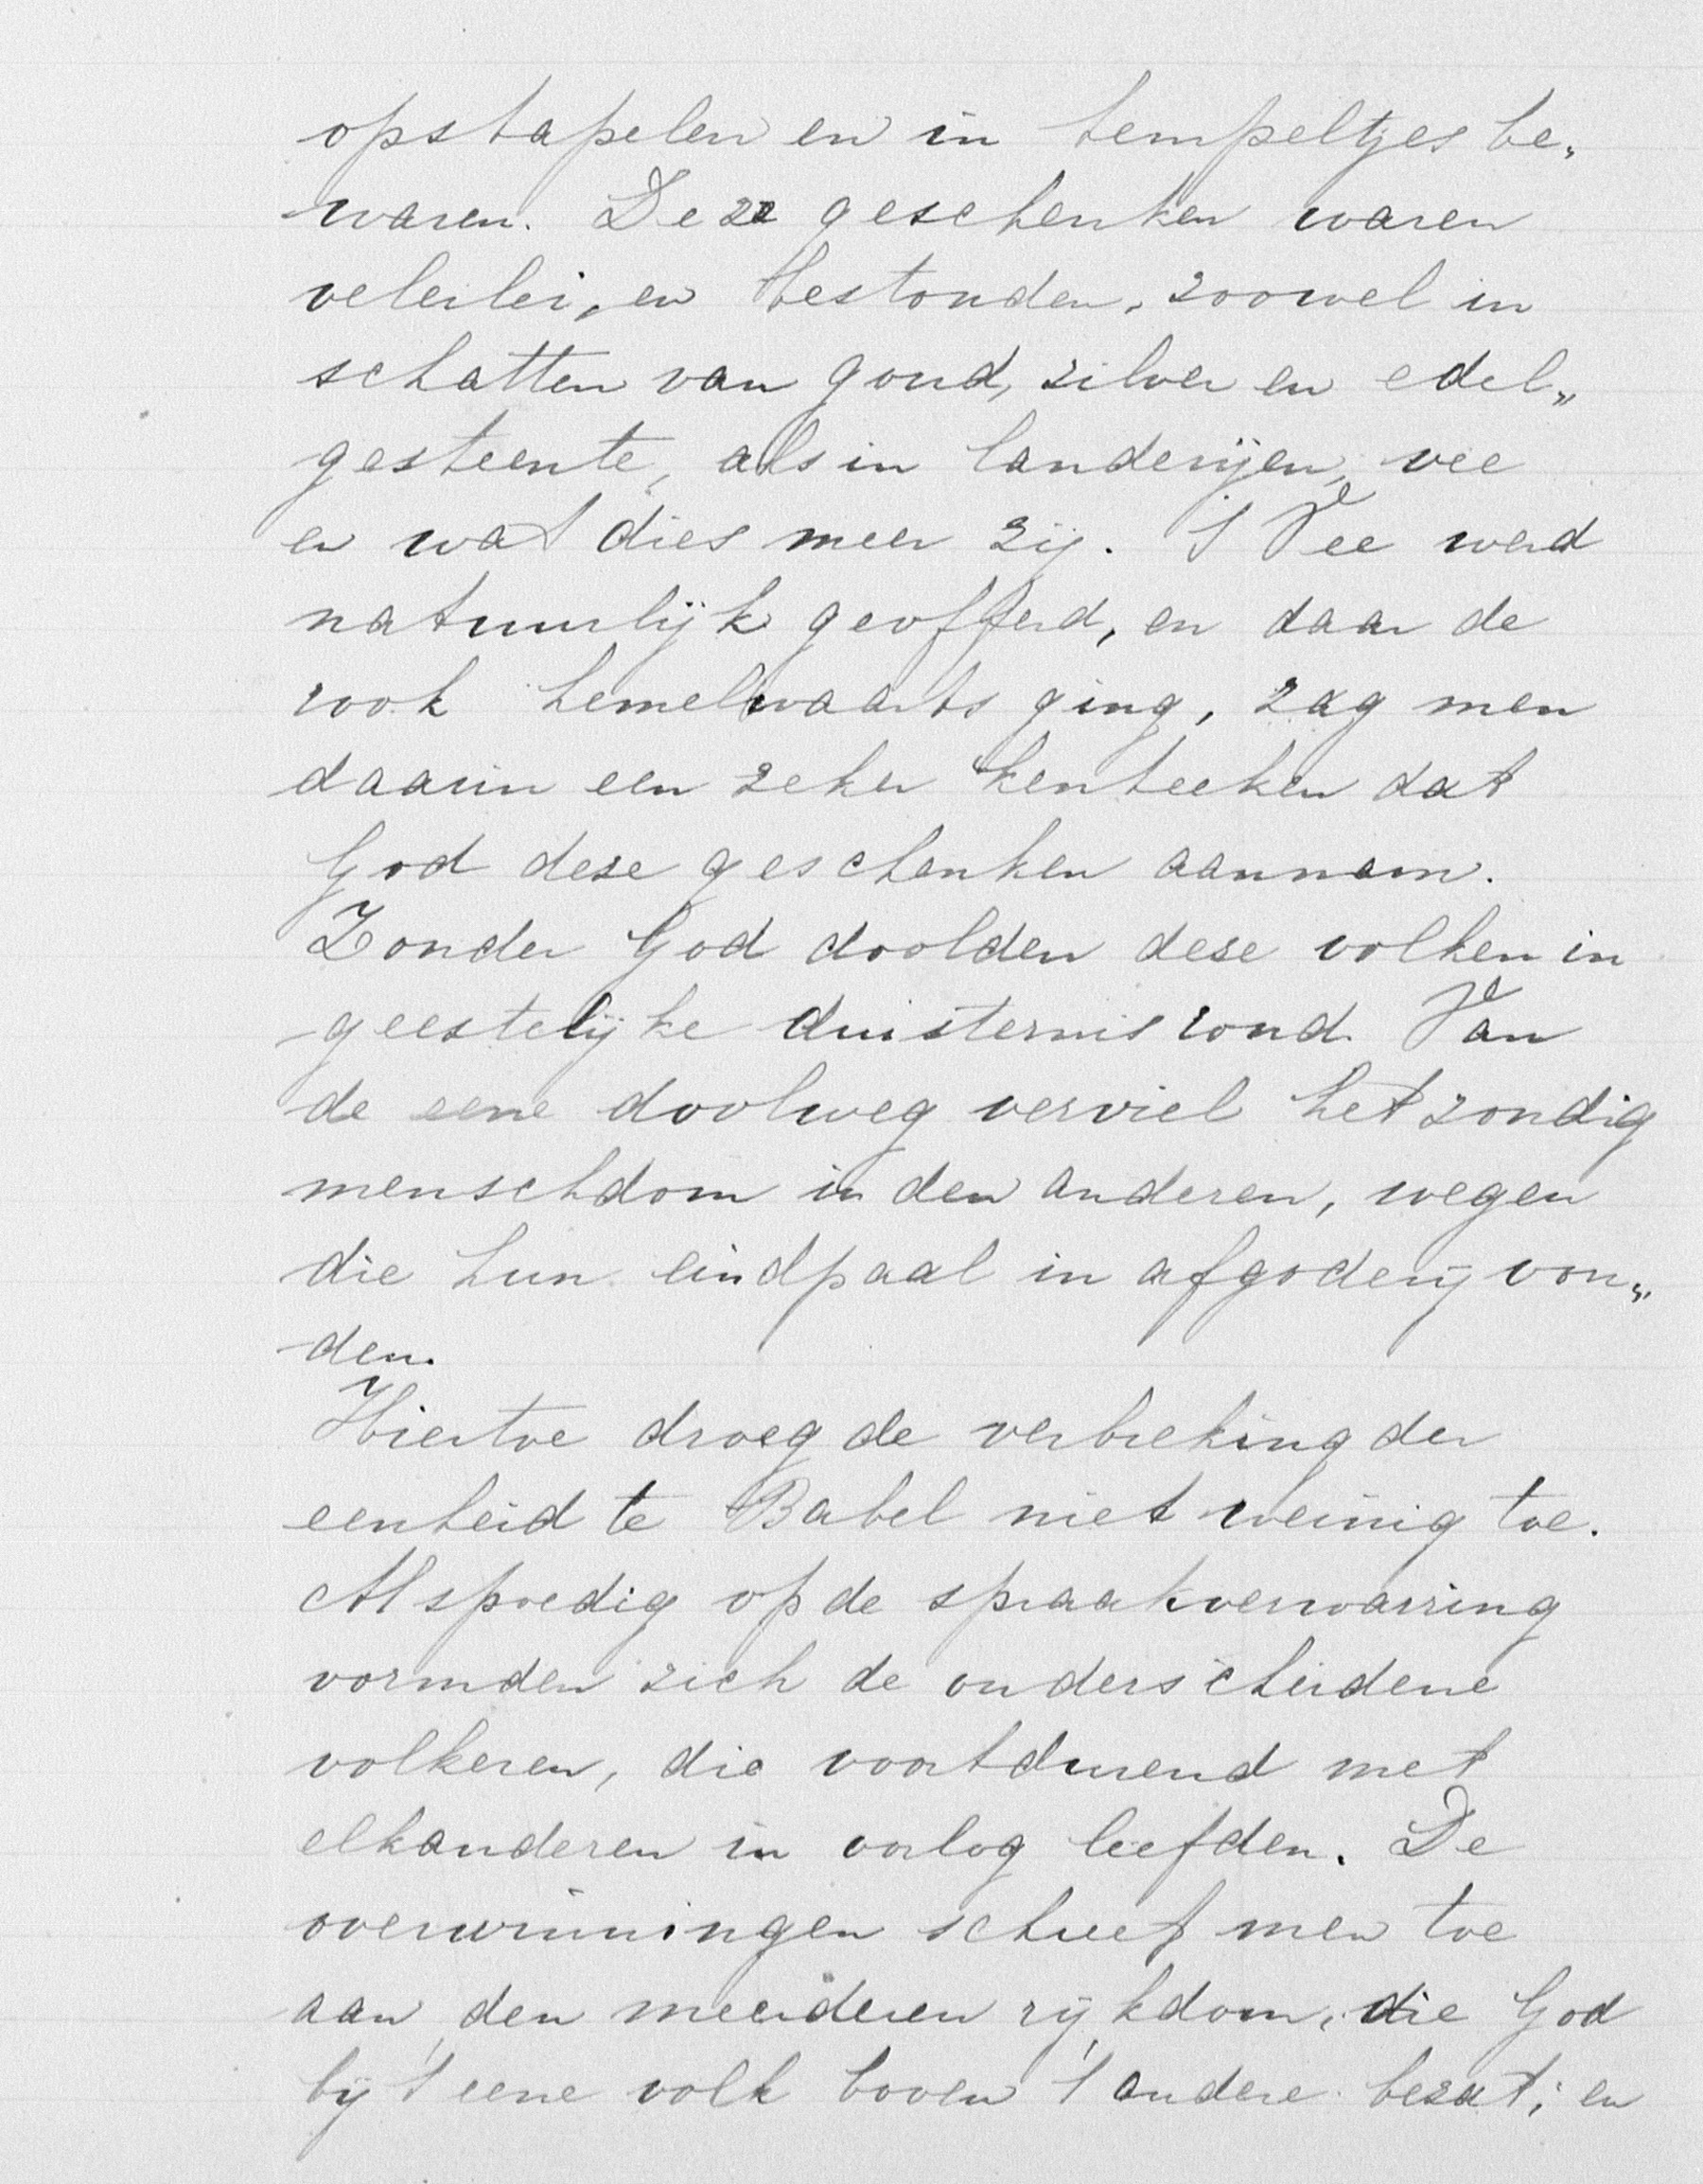 opstapelen en in tempeltjes be„
waren. Deze geschenken waren
velerlei, en bestonden, zoowel in
schatten van goud, zilver en edel„
gesteente, als in landerijen, vee
en wat dies meer zij. 't Vee werd
natuurlijk geofferd, en daar de
rook hemelwaarts ging, zag men
daarin een zeker kenteeken dat
God deze geschenken aannam.
Zonder God doolden deze volken in
geestelijke duisternis rond. Van
de eene doolweg verviel het zondig
menschdom in den anderen, wegen
die hun eindpaal in afgoderij von„
den.
Hiertoe droeg de verbreking der
eenheid te Babel niet weinig toe.
Al spoedig op de spraakverwarring
vormden zich de onderscheidene
volkeren, die voortdurend met
elkanderen in oorlog leefden. De
overwinningen schreef men toe
aan den meerderen rijkdom, die God
bij 't eene volk boven 't andere bezat; en